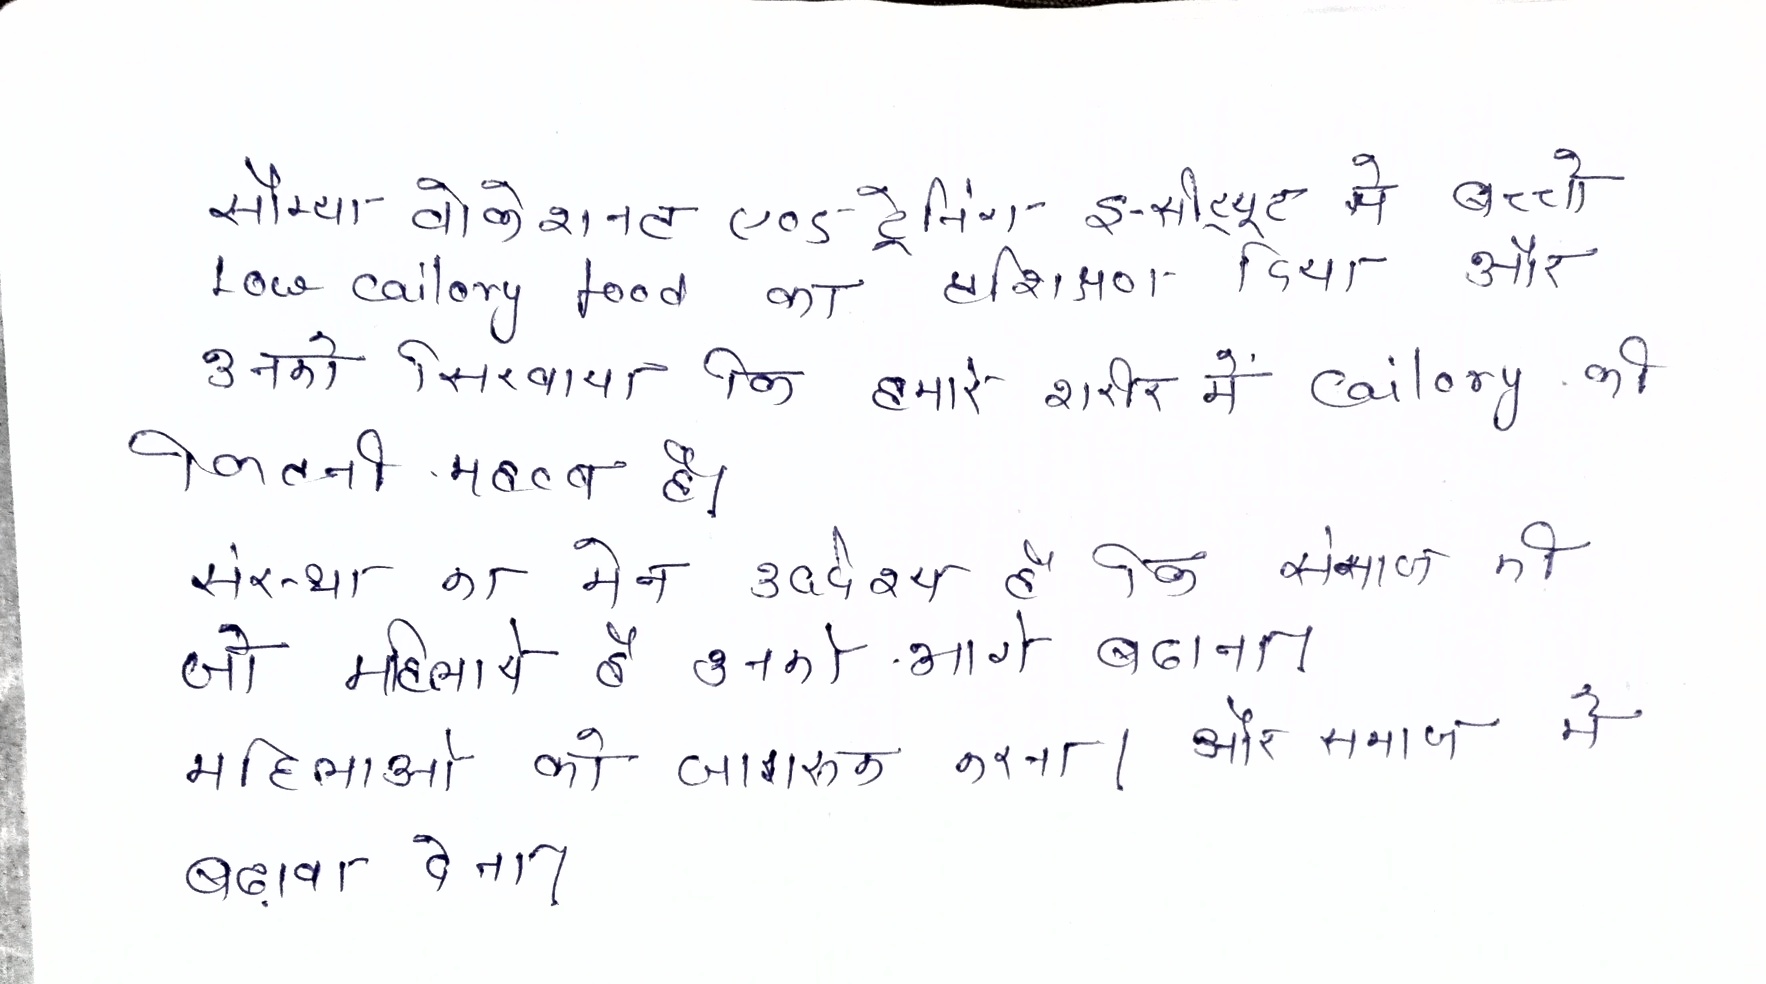 सौम्या वोकेशनल एण्ड ट्रेनिंग इन्सीट्यूट मे बच्चो
Low cailory food का प्रशिक्षण दिया और
उनको सिखाया कि हमारे शरीर में cailory की
कितनी महत्व है।
संस्था का मेन उददेश्य है कि संमाज की
जो महिलाये है उनको आगे बढाना।
महिलाओ को जागरूक करना। और समाज मे
बढ़ावा देना।